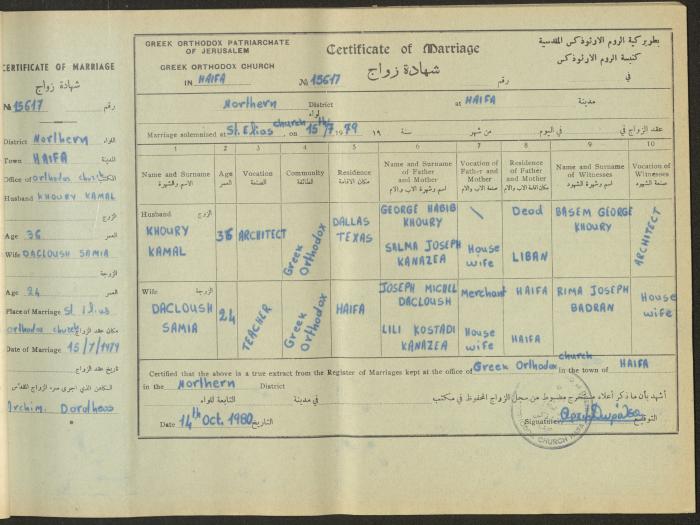 CERTIFICATE OF MARRIAGE
شهادة زواج
No 15617 رقم
District Northern اللواء
Town HAIFA المدينة
Office of orthodox church
Husband KHOURY KAMAL
الزوج
Age 36 العمر
Wife DACLOUSH SAMIA
الزوجة
Age 24 العمر
Place of Marriage St. Elias
orthodox church مكان عقد الزواج
Date of Marriage 15/7/1979
تاريخ عقد الزواج
الكاهن الذي اجرى سر الزواج المقدس
Archim. Dorotheos
GREEK ORTHODOX PATRIARCHATE
OF JERUSALEM
GREEK ORTHODOX CHURCH
IN HAIFA
Certificate of Marriage
شهادة زواج
No 15617 رقم
بطريركية الروم الارثوذكس المقدسية
كنيسة الروم الارثوذكس
في
Northern District لواء at HAIFA مدينة
Marriage solemnised at St. Elias church, on 15th/7 1979 ١٩ سنة من شهر في اليوم عقد الزواج في
1 2 3 4 5 6 7 8 9 10
Name and Surname
الاسم والشهرة
Age
العمر
Vocation
الصنعة
Community
الطائفة
Residence
مكان الاقامة
Name and Surname
of Father
and Mother
اسم وشهرة الاب والام
Vocation of
Father and
Mother
صنعة الاب والام
Residence
of Father
and Mother
مكان اقامة الاب والام
Name and Surname
of Witnesses
اسم وشهرة الشهود
Vocation of
Witnesses
صنعة الشهود
Husband الزوج
KHOURY
KAMAL
36
ARCHITECT
Greek
Orthodox
DALLAS
TEXAS
GEORGE HABIB
KHOURY
SALMA JOSEPH
KANAZEA
\
House
wife
Dead
LIBAN
BASEM GEORGE
KHOURY
ARCHITECT
Wife الزوجة
DACLOUSH
SAMIA
24
TEACHER
Greek
Orthodox
HAIFA
JOSEPH MICHEL
DACLOUSH
LILI KOSTADI
KANAZEA
Merchant
House
wife
HAIFA
HAIFA
RIMA JOSEPH
BADRAN
House
wife
Certified that the above is a true extract from the Register of Marriages kept at the office of Greek Orthodox church in the town of HAIFA
in the Northern District
أشهد بأن ما ذكر أعلاه مستخرج مضبوط من سجل الزواج المحفوظ في مكتب
في مدينة التابعة للواء
Date 14th Oct. 1980 التاريخ
Signature التوقيع